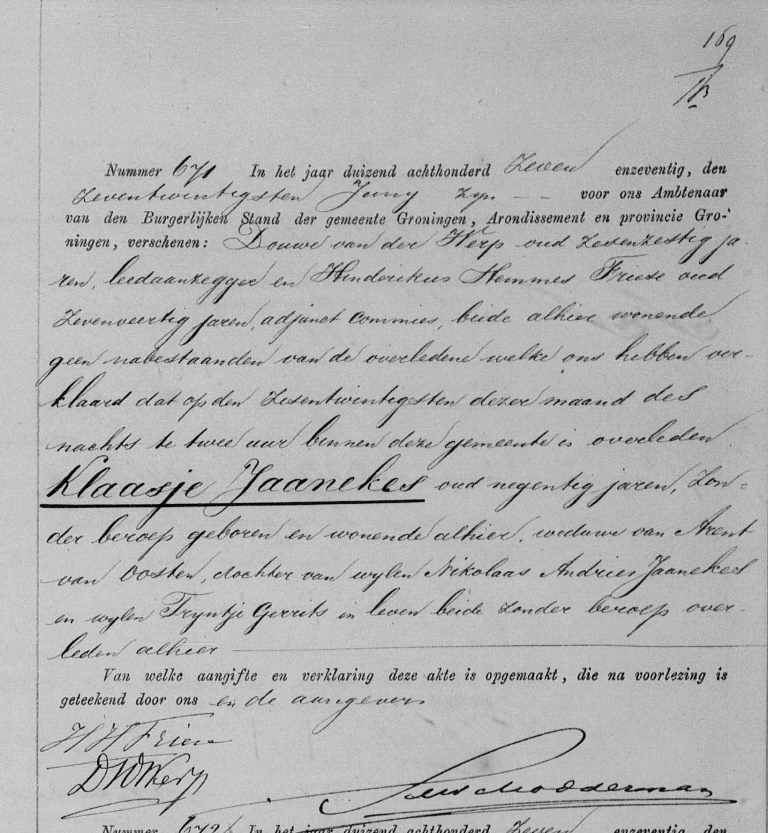 169
Nummer 671 In het jaar duizend achthonderd Zeven enzeventig, den
Zeventwintigsten Juny zyn - - voor ons Ambtenaar
van den Burgerlijken Stand der gemeente Groningen, Arondissement en provincie Gro-
ningen, verschenen: Douwe van der Werp oud zesenzestig ja-
ren, leedaanzegger en Hinderikus Hemmes Friese oud
Zevenveertig jaren, adjunct commies, beide alhier wonende
geen nabestaanden van de overledene welke ons hebben ver-
klaard dat op den Zesentwintigsten dezer maand des
nachts te twee uur binnen deze gemeente is overleden
Klaasje Jaanekes oud negentig jaren, Zon-
der beroep geboren en wonende alhier, weduwe van Arent
van Oosten, dochter van wylen Nikolaas Andries Jaanekes
en wylen Tryntje Gerrits in leven beide zonder beroep over-
leden alhier
Van welke aangifte en verklaring deze akte is opgemaakt, die na voorlezing is
geteekend door ons en de aangevers
H H Friese
DvdWerp
Nummer 672 In het jaar duizend achthonderd Zeven enzeventig, den